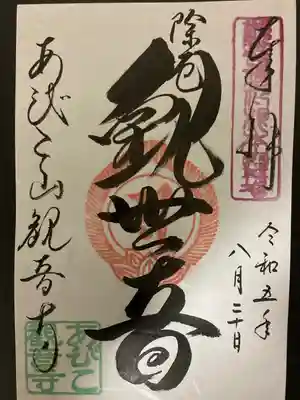 奉拝
令和五年
八月二十日
除厄
観世音
あびこ山観音寺
あびこ
観音寺